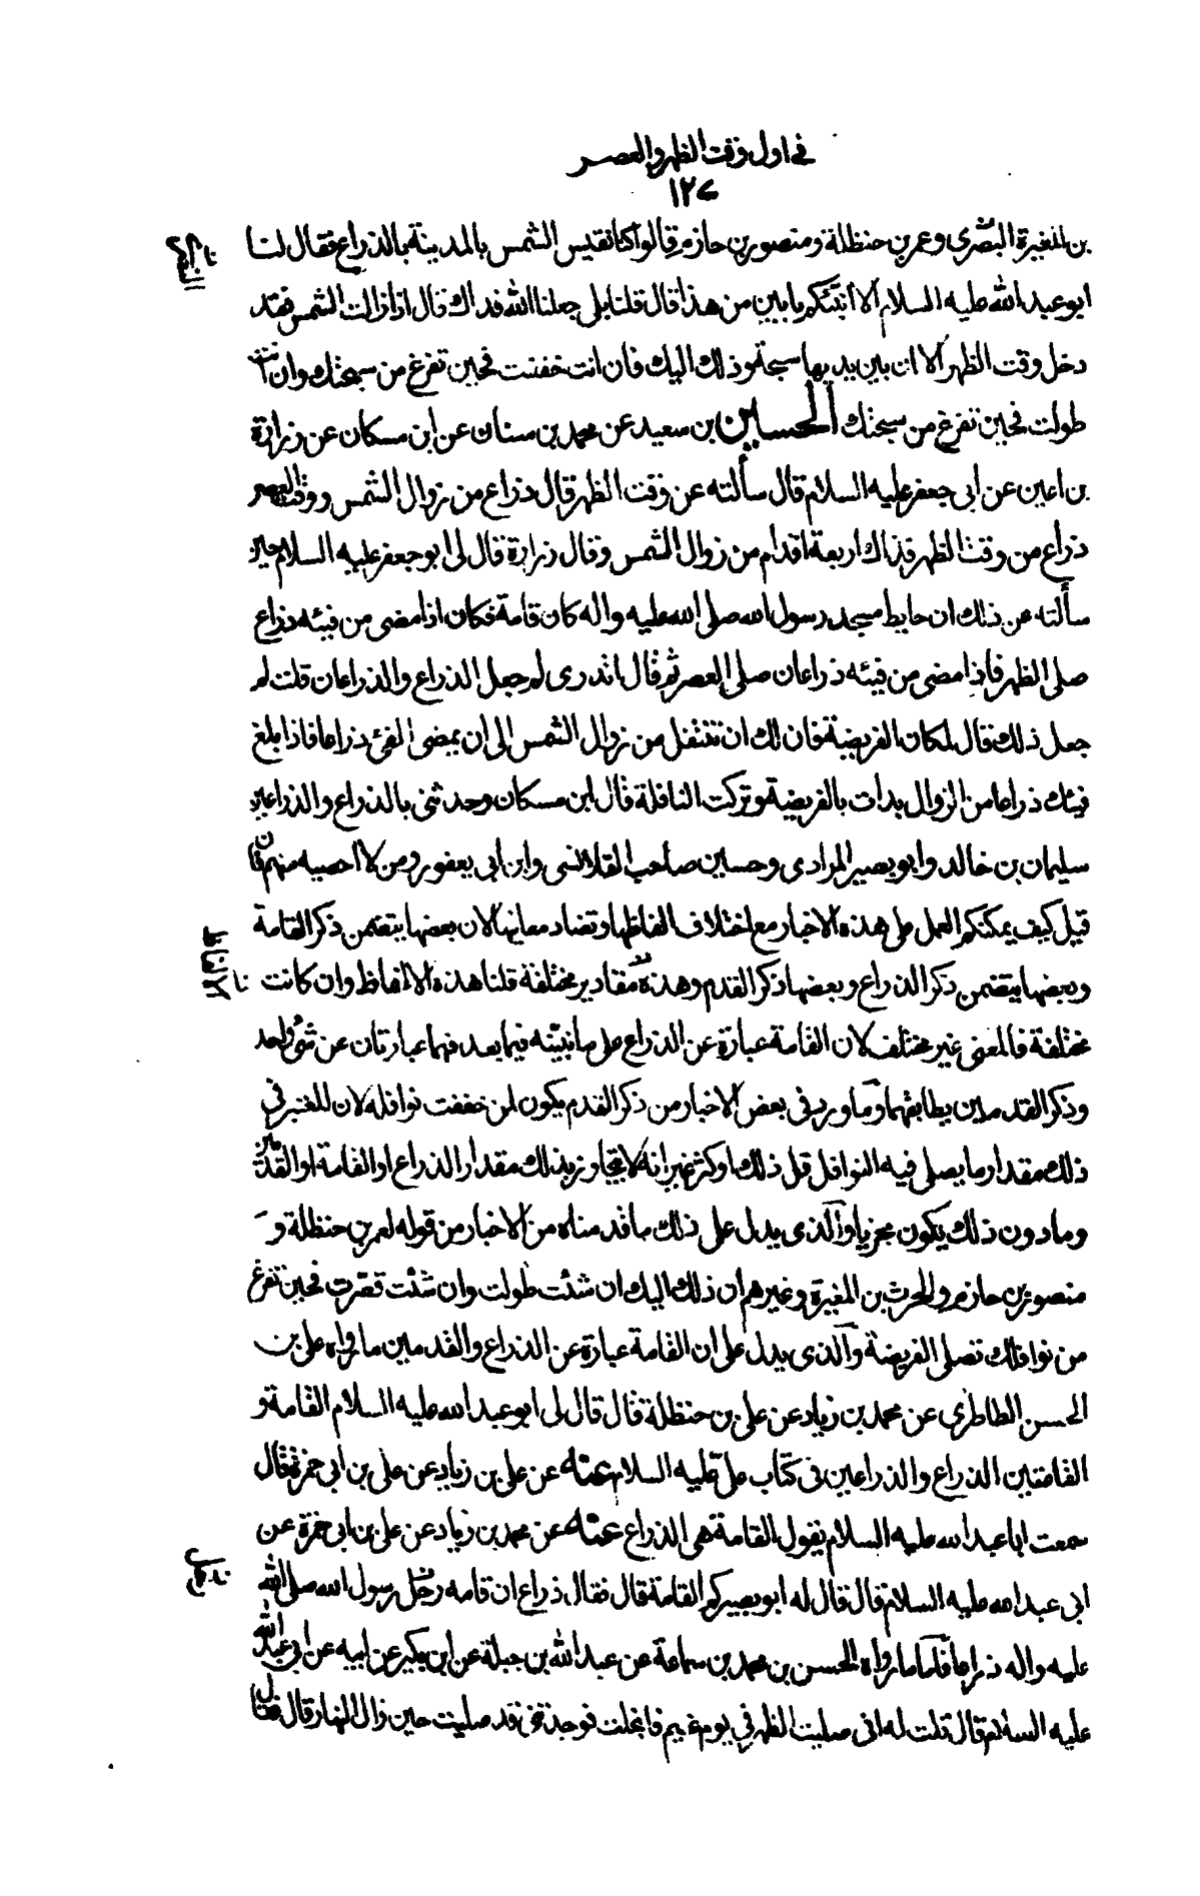 في اول وقت الظهر والعصر
١٢٧
بن المغيرة البصرى وعمر بن حنظلة ومنصور بن حازم قالوا كنا نقيس الشمس بالمدينة بالذراع فقال لنا
ابو عبد الله عليه السلام الا انبئكم بابين من هذا قال قلنا بلى جعلنا الله فداك قال اذا زالت الشمس فقد
دخل وقت الظهر الا ان بين يديها سبحة وذلك اليك فان انت خففت فحين تفرغ من سبحتك وان انت
طولت فحين تفرغ من سبحتك الحسين بن سعيد عن محمد بن سنان عن ابن مسكان عن زرارة
بن اعين عن ابى جعفر عليه السلام قال سألته عن وقت الظهر قال ذراع من زوال الشمس ووقت العصر
ذراع من وقت الظهر فذاك اربعة اقدام من زوال الشمس وقال زرارة قال لى ابو جعفر عليه السلام حين
سألته عن ذلك ان حايط مسجد رسول الله صلى الله عليه واله كان قامة فكان اذا مضى من فيئه ذراع
صلى الظهر فاذا مضى من فيئه ذراعان صلى العصر ثم قال اتدرى لم جعل الذراع والذراعان قلت لم
جعل ذلك قال لمكان الفريضة فان لك ان تتنفل من زوال الشمس الى ان يمضى الفئ ذراعا فاذا بلغ
فيئك ذراعا من الزوال بدات بالفريضة وتركت النافلة قال ابن مسكان وحدثنى بالذراع والذراعين
سليمان بن خالد وابو بصير المرادى وحسين صاحب القلانسى وابن ابى يعفور ومن لا احصيه منهم فان
قيل كيف يمكنكم العمل على هذه الاخبار مع اختلاف الفاظها وتضاد معانيها لان بعضها يتضمن ذكر القامة
وبعضها يتضمن ذكر الذراع وبعضها ذكر القدم وهذه مقادير مختلفة قلنا هذه الالفاظ وان كانت
مختلفة فالمعنى غير مختلف لان القامة عبارة عن الذراع على ما نبيّنه فيما بعد فهما عبارتان عن شئ واحد
وذكر القدمين يطابقهما وما ورد فى بعض الاخبار من ذكر القدم يكون لمن خففت نوافله لان المعتبر فى
ذلك مقدار ما يصلى فيه النوافل قل ذلك او كثر غير انه لا يتجاوز بذلك مقدار الذراع او القامة او القدمين
وما دون ذلك يكون مجزيا والذى يدل على ذلك ما قدمناه من الاخبار من قوله لعمر بن حنظلة و
منصور بن حازم والحرث بن المغيرة وغيرهم ان ذلك اليك ان شئت طولت وان شئت قصرت فحين تفرغ
من نوافلك تصلى الفريضة والذى يدل على ان القامة عبارة عن الذراع والقدمين ما رواه على بن
الحسن الطاطرى عن محمد بن زياد عن على بن حنظلة قال قال لى ابو عبد الله عليه السلام القامة و
القامتين الذراع والذراعين فى كتاب على عليه السلام عنه عن على بن زياد عن على بن ابى حمزة قال
سمعت ابا عبد الله عليه السلام يقول القامة هى الذراع عنه عن محمد بن زياد عن على بن ابى حمزة عن
ابى عبد الله عليه السلام قال قال له ابو بصير كم القامة قال فقال ذراع ان قامة رحل رسول الله صلى الله
عليه واله ذراعا فاما ما رواه الحسن بن محمد بن سماعة عن عبد الله بن جبلة عن ابن بكير عن ابيه عن ابى عبد الله
عليه السلام قال قلت له انى صليت الظهر فى يوم غيم فانجلت فوجدتنى قد صليت حين زال النهار قال فقال